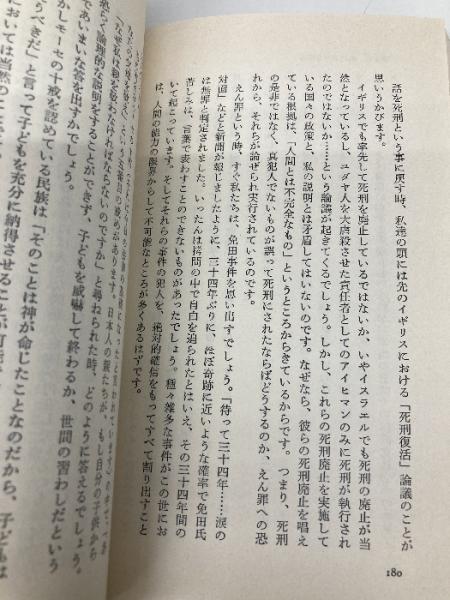 話を死刑という事に戻す時、私達の頭には先のイギリスにおける「死刑復活」論議のことが
思いうかびます。
イギリスでも率先して死刑を廃止しているではないか、いやイスラエルでも死刑の廃止が当
然となっているし、ユダヤ人を大虐殺させた責任者としてのアイヒマンのみに死刑が執行され
たのではないか……という論議が起きてくるでしょう。しかし、これらの死刑廃止を実施して
いる国々の政策と、私の説明とは矛盾してはいないのです。なぜなら、彼らの死刑廃止を唱え
ている根拠は、「人間とは不完全なもの」というところからきているからです。つまり、死刑
の是非ではなく、真犯人でないものが誤って死刑にされたならばどうするのか、えん罪への恐
れから、それらが論ぜられ実行されているのです。
えん罪という時、すぐ私たちは、免田事件を思い出すでしょう。「待って三十四年……涙の
対面」などと新聞が報じましたように、三十四年ぶりに、ほぼ奇跡に近いような確率で免田氏
は無罪と判定されました。いったんは拷問の中で自白を迫られたとはいえ、その三十四年間の
苦しみは、言葉で表わすことのできないものがあったでしょう。種々雑多な事件がこの世にお
いて起こっています。そしてそれらの事件の犯人を、絶対的確信をもってすべて割り出すこと
は、人間の能力の限界からして不可能なところが多くあるはずです。
「なぜ私は親を敬わなければならないのですか」と尋ねられた時、どのように答えるでしょう。
恐らく論理的な説明をすることができず、子どもを威嚇して終わるか、世間の習わしだという
であいまいな答を出すかでしょう。
かしモーセの十戒を認めている民族は「そのことは神が命じたことなのだから、子どもは
うべきだ」と言って子どもを充分に納得させることが可能
においては当然のことで
180